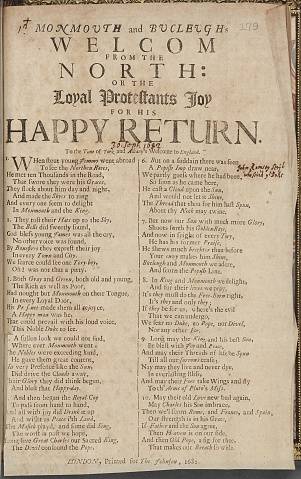 179
MONMOUTH and BUCLEUGHs
WELCOM
FROM THE
NORTH:
OR THE
Loyal Protestants Joy
FOR HIS
HAPPY RETURN.
30. Sept. 1682
To the Tune of York and Albany's Welcome to England.
1. WHen from young Jemmy went abroad
To see the Northern Race,
He met ten Thousands in the Road,
That swore they were his Grace,
They flock about him day and night,
And made the Skies to ring
And every one seem to delight
In Monmouth and the King.
2. They tost their Hats up to the Sky,
The Bells did sweetly sound,
God bless young James was all the cry,
No other voice was found,
By Bonefires they exprest their joy
In every Town and City
We scarce could see one Tory boy,
Oh! was not that a pity.
3. Both Gray and Green, both old and young,
The Rich as well as Poor,
Had nought but Monmouth on their Tongue,
In every Loyal Door,
His Presence made them all rejoyce,
A Happy man was he,
That could prevail with his loud voice,
This Noble Duke to see.
4. A sullen look we could not find,
Where ever Monmouth went
The Nobles were exceeding kind,
He gave them great content,
So very Prosperous like the Sun,
Did drive the Clouds away,
Their Glory they did think begun,
And blest that Happy day.
5. And then began the Royal Cup
To pass from hand to hand
And all with joy did Drink it up
And wisht to Peace this Land,
The Musick play'd, and some did Sing,
The worst is past we hope,
Long live Great Charles our Sacred King,
The Devil confound the Pope.
6. But on a suddain there was seen
A Popish Imp draw near,
We partly guess where he had been,
So soon as he came here,
He cast a Cloud upon the Sun,
And would not let it Shine,
The Thread that thou for him hast Spun,
About thy Neck may twine.
7. But now our Sun with much more Glory,
Shoots forth his Golden Rays,
And now in spight of every Tory,
He has his former Praise,
He shews much brighter than before
Your envy makes him Shine,
Bucleugh and Monmouth we adore,
and scorn the Popish Line.
8. In King and Monmouth we delight,
And for their lives we pray,
It's they must do the Free-Born right,
It's they and only they;
If they be for us, where's the evil
That we can undergo,
We fear no Duke, no Pope, nor Devil,
Nor any other Foe.
9. Long may the King and his best Son,
Be blest with Joy and Peace,
And may their Threads of life be Spun
Till all our sorrows cease;
Nay may they live and never dye,
In everlasting Bliss,
And may their Foes take Wings and fly
To th' Arms of Pluto's Miss.
10. May they the old Love new bud again,
May Charles his Son embrace,
Then we'll scorn Rome, and France, and Spain,
Our strength is in his Grace,
If Father and the Son agree,
Then Heaven is on our side,
And then Old Pope, a fig for thee,
That makes our Breach so wide.
LONDON, Printed for The Johnson, 1682.